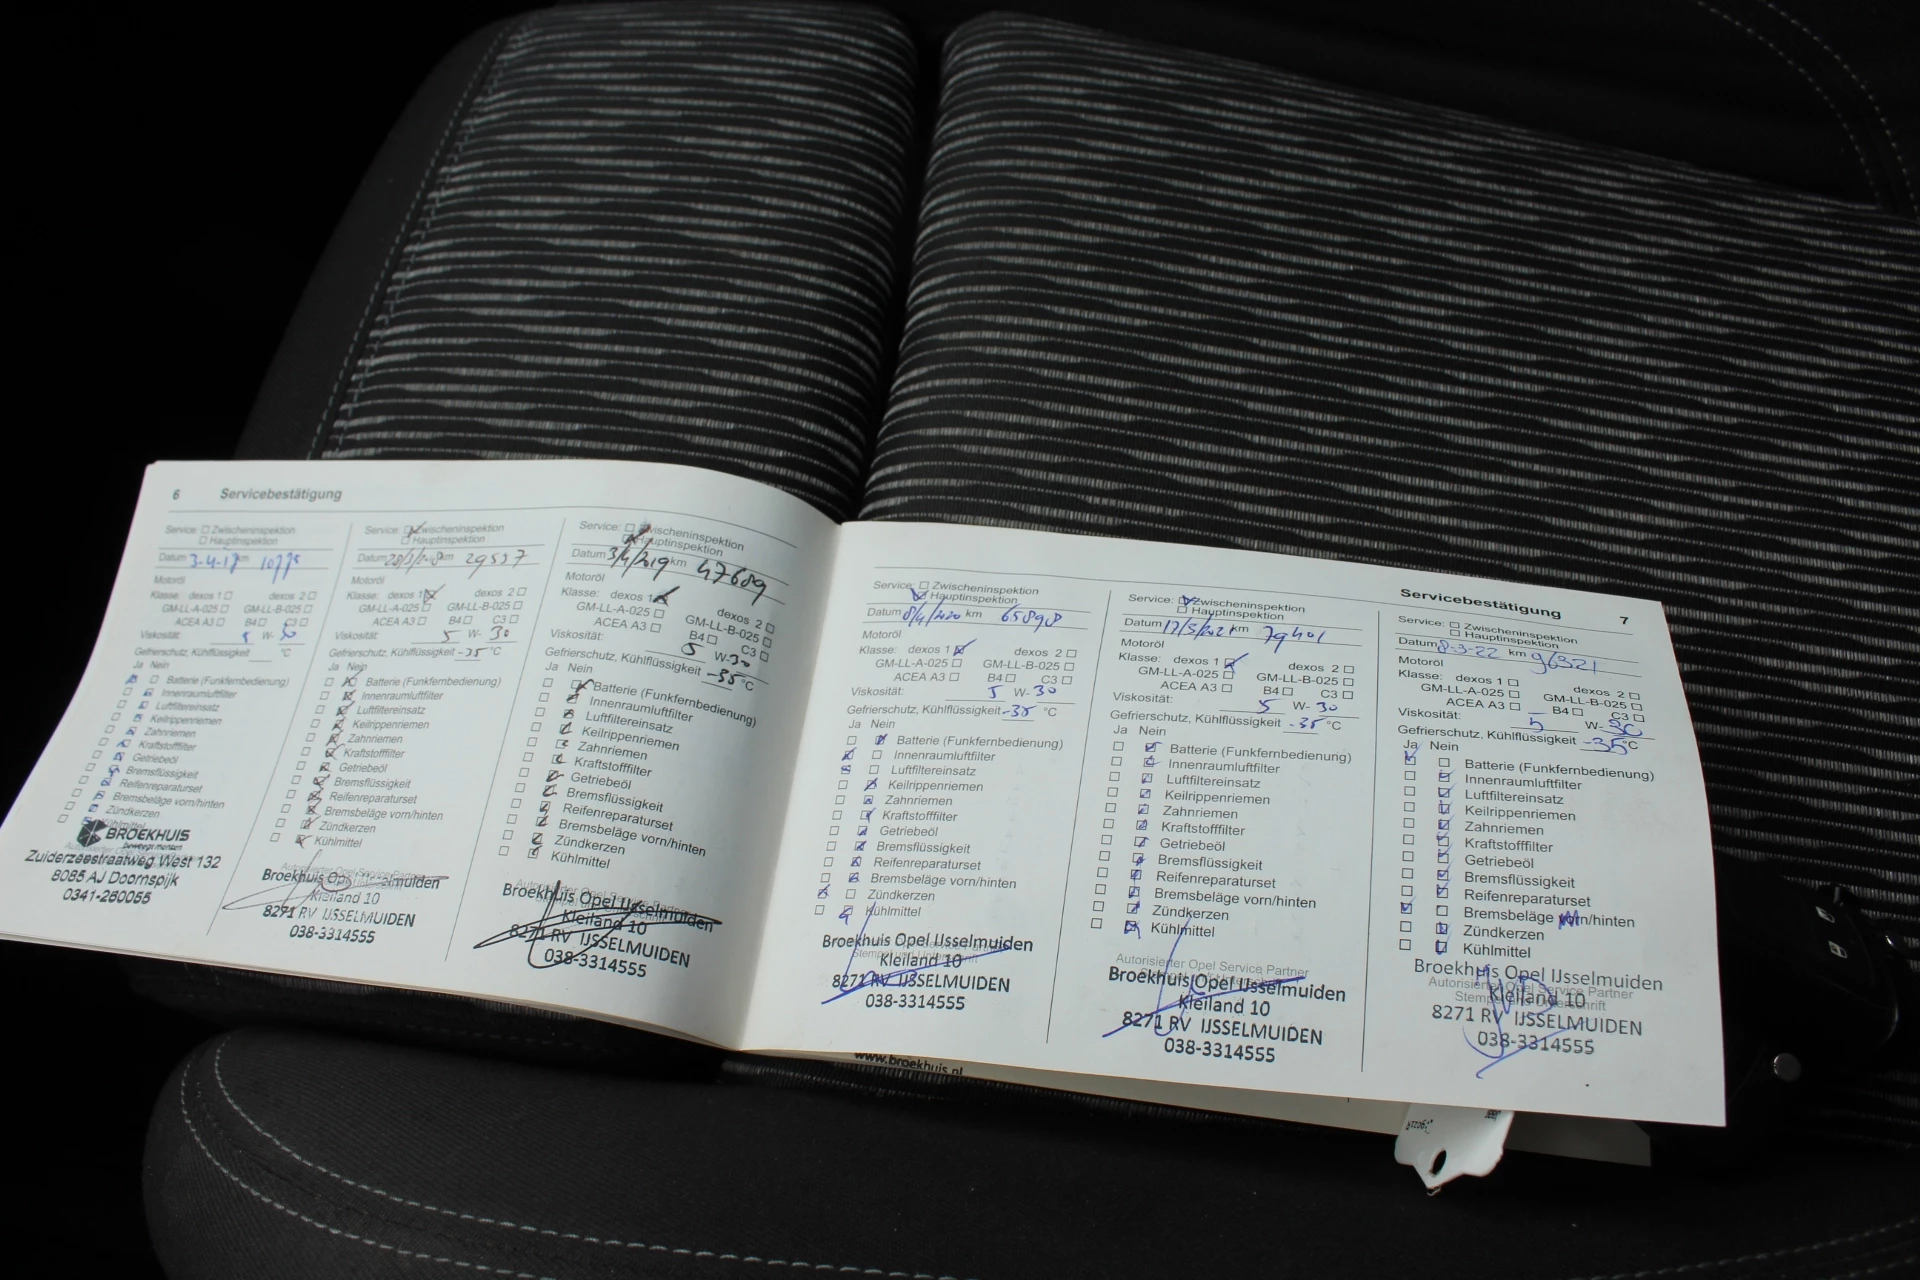 6 Servicebestätigung
Service: Zwischeninspektion
Hauptinspektion
Datum 3-4-17 km
Motoröl
Klasse: dexos 1 dexos 2
GM-LL-A-025 GM-LL-B-025
ACEA A3 B4 C3
Viskosität: 5 W- 30
Gefrierschutz, Kühlflüssigkeit °C
Ja Nein
Batterie (Funkfernbedienung)
Innenraumluftfilter
Luftfiltereinsatz
Keilrippenriemen
Zahnriemen
Kraftstofffilter
Getriebeöl
Bremsflüssigkeit
Reifenreparaturset
Bremsbeläge vorn/hinten
Zündkerzen
Kühlmittel
BROEKHUIS
beweegt mensen
Zuiderzeestraatweg West 132
8085 AJ Doornspijk
0341-260055
Service: Zwischeninspektion
Hauptinspektion
Datum 28/3/2018 km 29537
Motoröl
Klasse: dexos 1 dexos 2
GM-LL-A-025 GM-LL-B-025
ACEA A3 B4 C3
Viskosität: 5 W- 30
Gefrierschutz, Kühlflüssigkeit -35 °C
Ja Nein
Batterie (Funkfernbedienung)
Innenraumluftfilter
Luftfiltereinsatz
Keilrippenriemen
Zahnriemen
Kraftstofffilter
Getriebeöl
Bremsflüssigkeit
Reifenreparaturset
Bremsbeläge vorn/hinten
Zündkerzen
Kühlmittel
Broekhuis Opel IJsselmuiden
Kleiland 10
8271 RV IJSSELMUIDEN
038-3314555
Service: Zwischeninspektion
Hauptinspektion
Datum 3/4/2019 km 47689
Motoröl
Klasse: dexos 1 dexos 2
GM-LL-A-025 GM-LL-B-025
ACEA A3 B4 C3
Viskosität: 5 W-30
Gefrierschutz, Kühlflüssigkeit -35 °C
Ja Nein
Batterie (Funkfernbedienung)
Innenraumluftfilter
Luftfiltereinsatz
Keilrippenriemen
Zahnriemen
Kraftstofffilter
Getriebeöl
Bremsflüssigkeit
Reifenreparaturset
Bremsbeläge vorn/hinten
Zündkerzen
Kühlmittel
Broekhuis Opel IJsselmuiden
Kleiland 10
8271 RV IJSSELMUIDEN
038-3314555
Servicebestätigung 7
Service: Zwischeninspektion
Hauptinspektion
Datum 8/4/2020 km 65898
Motoröl
Klasse: dexos 1 dexos 2
GM-LL-A-025 GM-LL-B-025
ACEA A3 B4 C3
Viskosität: 5 W- 30
Gefrierschutz, Kühlflüssigkeit -35 °C
Ja Nein
Batterie (Funkfernbedienung)
Innenraumluftfilter
Luftfiltereinsatz
Keilrippenriemen
Zahnriemen
Kraftstofffilter
Getriebeöl
Bremsflüssigkeit
Reifenreparaturset
Bremsbeläge vorn/hinten
Zündkerzen
Kühlmittel
Broekhuis Opel IJsselmuiden
Kleiland 10
8271 RV IJSSELMUIDEN
038-3314555
Service: Zwischeninspektion
Hauptinspektion
Datum 17/3/2021 km 79401
Motoröl
Klasse: dexos 1 dexos 2
GM-LL-A-025 GM-LL-B-025
ACEA A3 B4 C3
Viskosität: 5 W- 30
Gefrierschutz, Kühlflüssigkeit -35 °C
Ja Nein
Batterie (Funkfernbedienung)
Innenraumluftfilter
Luftfiltereinsatz
Keilrippenriemen
Zahnriemen
Kraftstofffilter
Getriebeöl
Bremsflüssigkeit
Reifenreparaturset
Bremsbeläge vorn/hinten
Zündkerzen
Kühlmittel
Autorisierter Opel Service Partner
Broekhuis Opel IJsselmuiden
Kleiland 10
8271 RV IJSSELMUIDEN
038-3314555
Service: Zwischeninspektion
Hauptinspektion
Datum 8-3-22 km 96321
Motoröl
Klasse: dexos 1 dexos 2
GM-LL-A-025 GM-LL-B-025
ACEA A3 B4 C3
Viskosität: 5 W- 30
Gefrierschutz, Kühlflüssigkeit -35 °C
Ja Nein
Batterie (Funkfernbedienung)
Innenraumluftfilter
Luftfiltereinsatz
Keilrippenriemen
Zahnriemen
Kraftstofffilter
Getriebeöl
Bremsflüssigkeit
Reifenreparaturset
Bremsbeläge vorn/hinten
Zündkerzen
Kühlmittel
Broekhuis Opel IJsselmuiden
Autorisierter Opel Service Partner
Kleiland 10
Stempel und Unterschrift
8271 RV IJSSELMUIDEN
038-3314555
www.broekhuis.nl